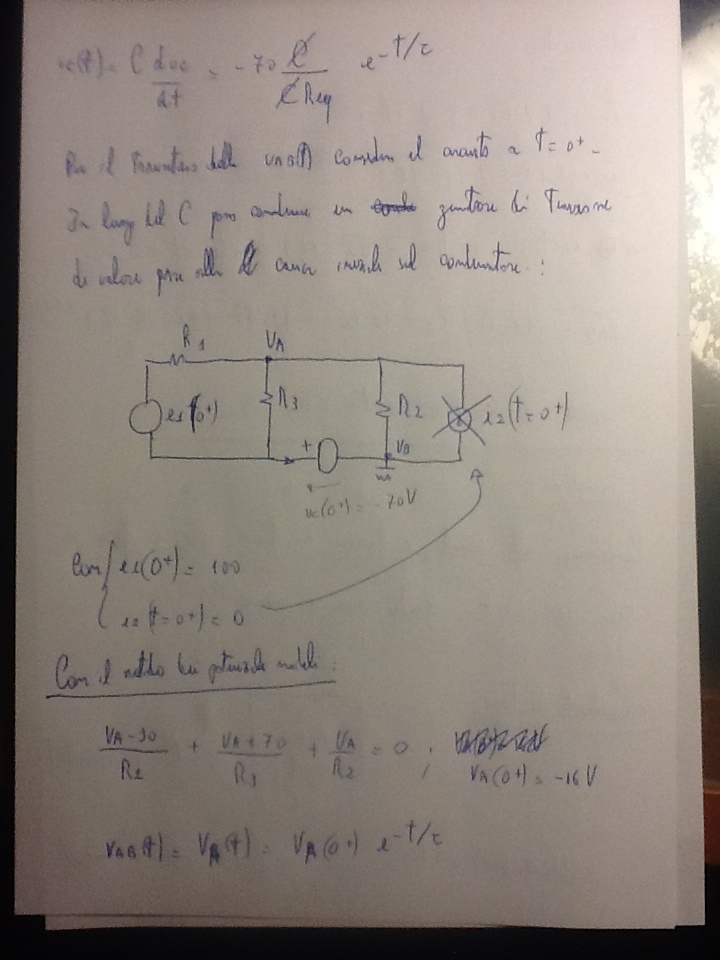 ic(t) = C dvc/dt = -70 C/(C Req) e^-t/τ
Per il transitorio della vAB(t) considero il circuito a t=0+.
In luogo del C posso considerare un generatore di tensione
di valore pari alla carica iniziale sul condensatore:
R1 VA
e1(0+) R3 R2 i2(t=0+)
+ VB
vc(0+) = -70V
Con { e1(0+) = 100
i2(t=0+) = 0
Con il metodo dei potenziali nodali:
(VA-30)/R1 + (VA+70)/R3 + VA/R2 = 0 ;
VA(0+) = -16 V
vAB(t) = VA(t) = VA(0+) e^-t/τ